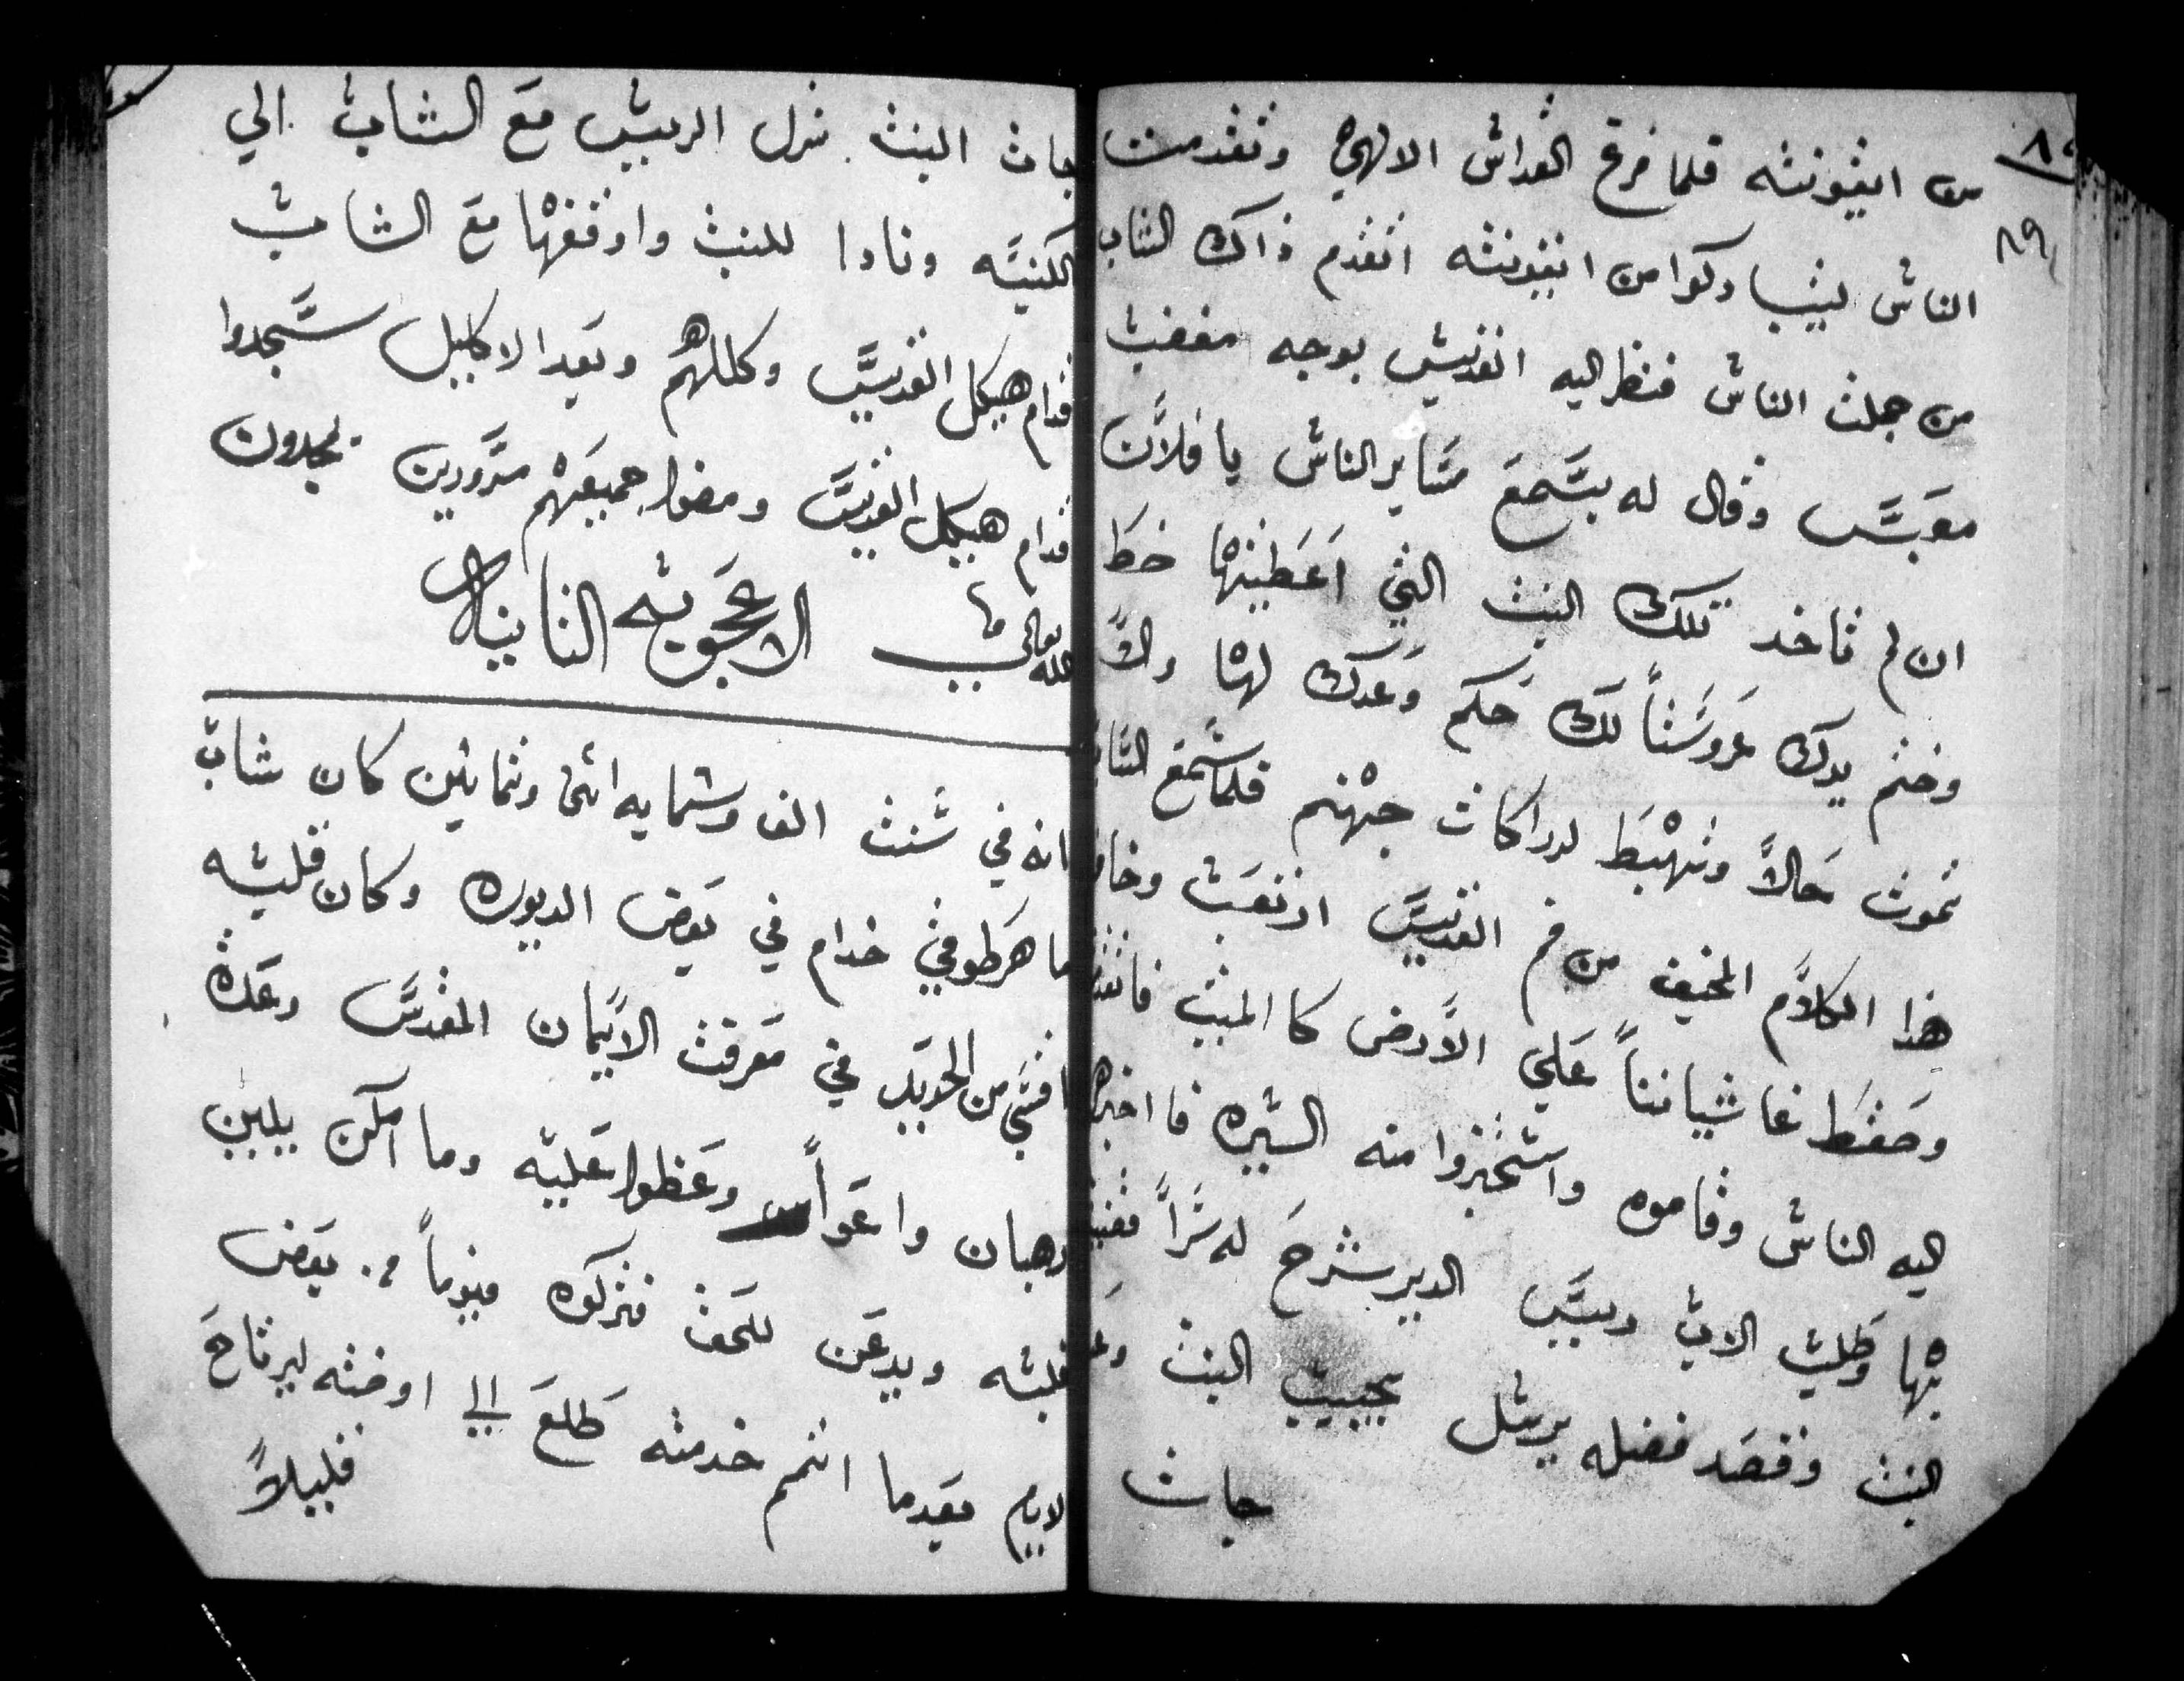 من ايقونته فلما فرغ القداس الالهي وتقدمت
الناس ليتباركوا من ايقونته اتقدم ذاك الشاب
من جملت الناس فنظر اليه القديس بوجه مغضب
معبس وقال له بسمع ساير الناس يا فلان
ان لم تاخد تلك البنت التي اعطيتها خط
وختم يدك عروستاً لك حكم وعدك لها والا
تموت حالاً وتهبط لدراكات جهنم فلما سمع الشاب
هذا الكلام المخيف من فم القديس ارتعب وخاف
وسقط غاشياننا علي الارض كا الميت
اليه الناس وقاموه واستخبروا منه السيره فا اخبرهم
بها وطلب الاب رييس الدير يشرح له سراً
البنت وقصد فضله يرسل يجيب البنت
جات
٨٩
جات البنت نزل الرييس مع الشاب الي
الكنيسه ونادا للبنت واوقفها مع الشاب
قدام هيكل القديس وكللهم وبعد الاكليل سجدوا
قدام هيكل القديس ومضوا جميعهم مسرورين يمجدون
الله تعالى الاعجوبه التانيه
انه في سنت الف وستمايه اتنى وتمانين كان شاب
ما هرطوقي خدام في بعض الديوره وكان قلبه
اقسي من الحديد في معرفت الايمان المقدس وعدة
رهبان واعوام وعظوا عليه وما امكن يلين
قلبه ويدعن للحق فتركوه فيوماً من بعض
لايام بعدما اتمم خدمته طلع الي اوضته ليرتاح
قليلاً